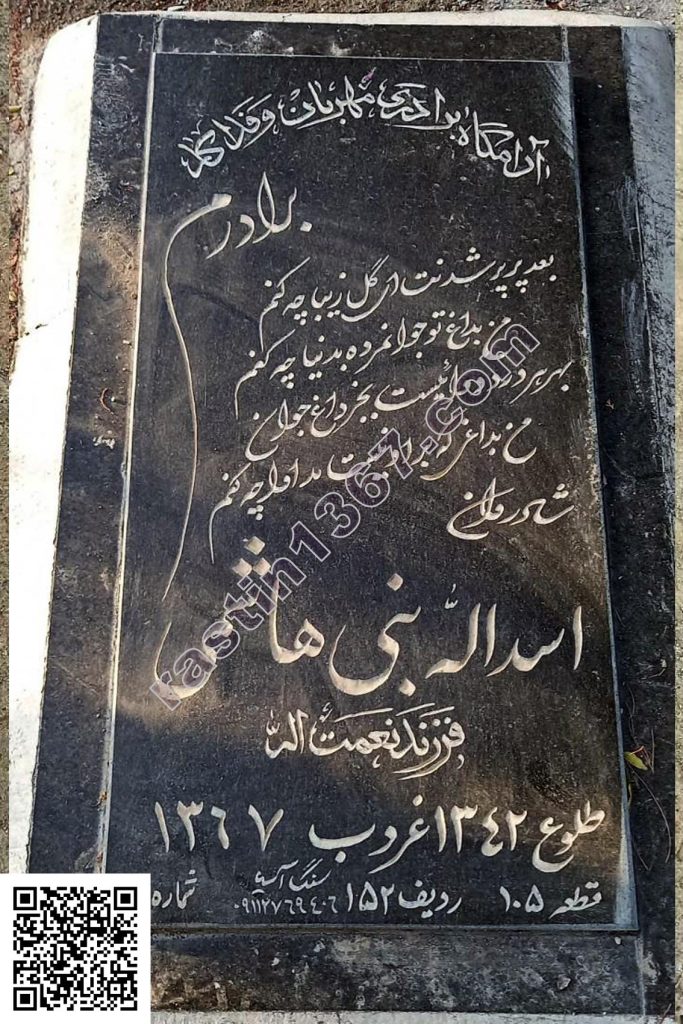 آرامگاه برادری مهربان و فداکار
برادرم
بعد پرپر شدنت ای گل زیبا چه کنم
من بداغ تو جوانمرده بدنیا چه کنم
بهر هر درد دوائیست بجز داغ جوان
من بداغی که بر او نیست مداوا چه کنم
شادروان
اسداله بنی هاشمی
فرزند نعمت اله
طلوع ۱۳۴۲ غروب ۱۳۶۷
قطعه ۱۰۵ ردیف ۱۵۲ شماره
سنگ آسیا
۰۹۱۱۲۷۶۹۴۰۶
rastin1367.com